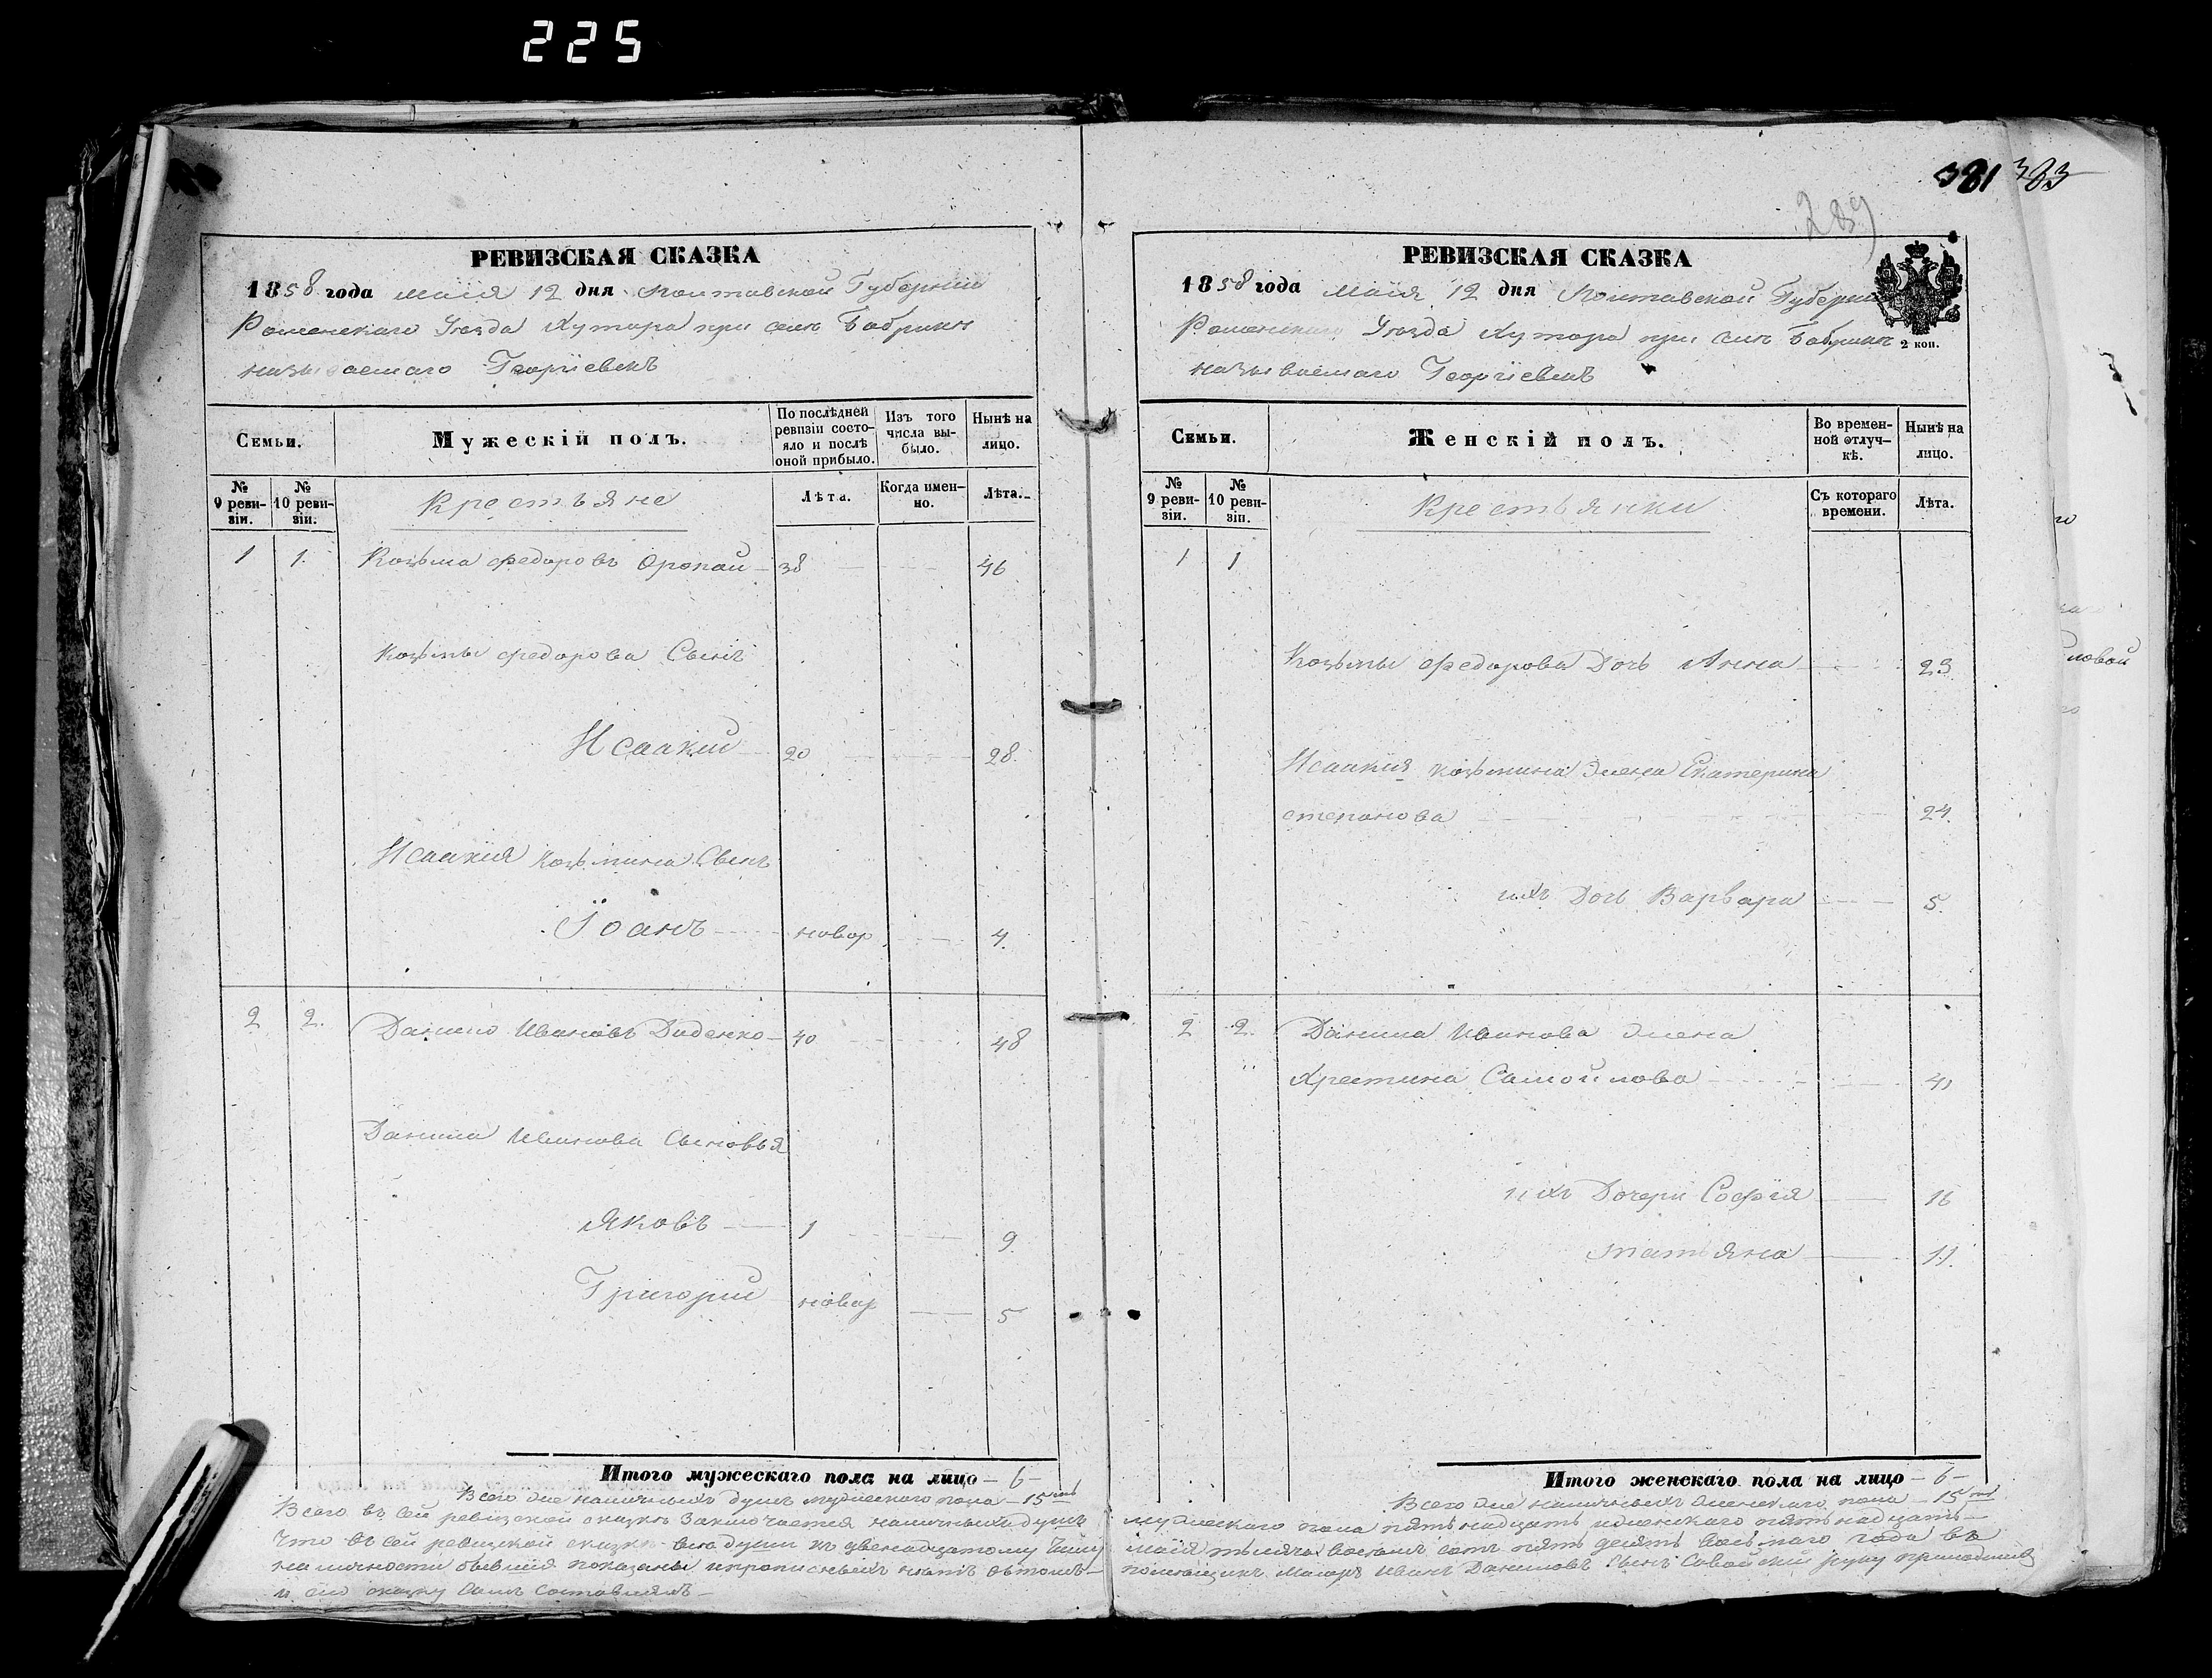 225
381 383
289
РЕВИЗСКАЯ СКАЗКА
1858 года маія 12 дня Полтавской Губерніи
Роменскаго Уѣзда Хутора при селѣ Бобрикѣ
называемаго Георгіевскъ
Семьи.
Мужескій полъ.
По послѣдней ревизіи состояло и послѣ оной прибыло.
Изъ того числа выбыло.
Нынѣ на лицо.
№ 9 ревизіи.
№ 10 ревизіи.
Крестьяне
Лѣта.
Когда именно.
Лѣта.
1 1. Козьма Федоровъ Оропай 38 46
Козьмы Федорова Сынъ
Исаакий 20 28.
Исаакия Козьмина Сынъ
Іоанъ новор 4.
2 2. Данило Ивановъ Диденко 40 48
Данила Иванова Сыновья
Яковъ 1 9.
Григорий новор 5
Итого мужескаго пола на лицо – 6 –
Всего же наличныхъ душъ мужескаго пола – 15ть
Всего въ сей ревизской сказкѣ заключается наличныхъ душъ
что въ сей ревизкой сказкѣ всѣ души къ двенадцатому числу
на личности бывшия показаны и прописныхъ нѣтъ въ томъ
и сию сказку самъ составлялъ –
РЕВИЗСКАЯ СКАЗКА
1858 года маія 12 дня Полтавской Губерніи
Роменскаго Уѣзда Хутора при селѣ Бобрикѣ
2 коп.
называемаго Георгіевскъ
Семьи.
Женскій полъ.
Во временной отлучкѣ.
Нынѣ на лицо.
№ 9 ревизіи.
№ 10 ревизіи.
Крестьянки
Съ котораго времени.
Лѣта.
1 1
Козьмы Федорова Дочь Анна 23.
Исаакия Козьмина Жена Екатерина
степанова 24.
ихъ Дочь Варвара 5.
2 2. Данила Иванова жена
Хрестина Самойлова 41
ихъ Дочери Софія 16
татьяна 11.
Итого женскаго пола на лицо – 6 –
Всего же наличныхъ женскаго пола – 15ть
мужескаго пола пятьнадцать женскаго пятьнадцать –
маія тысяча восемь сотъ пять десятъ восьмаго года въ
помещикъ Маіоръ Иванъ Даниловъ Сынъ руку приложилъ
ловой